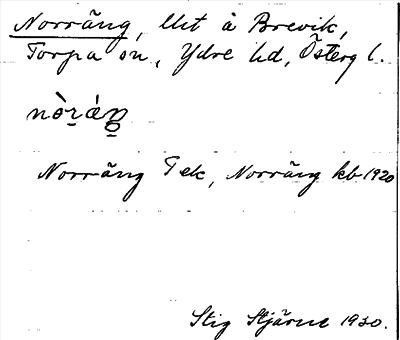 Norräng, lht å Brevik,
Torpa sn, Ydre hd, Östergl.
Norräng T ek, Norräng kb 1920
Stig Stjärne 1930.